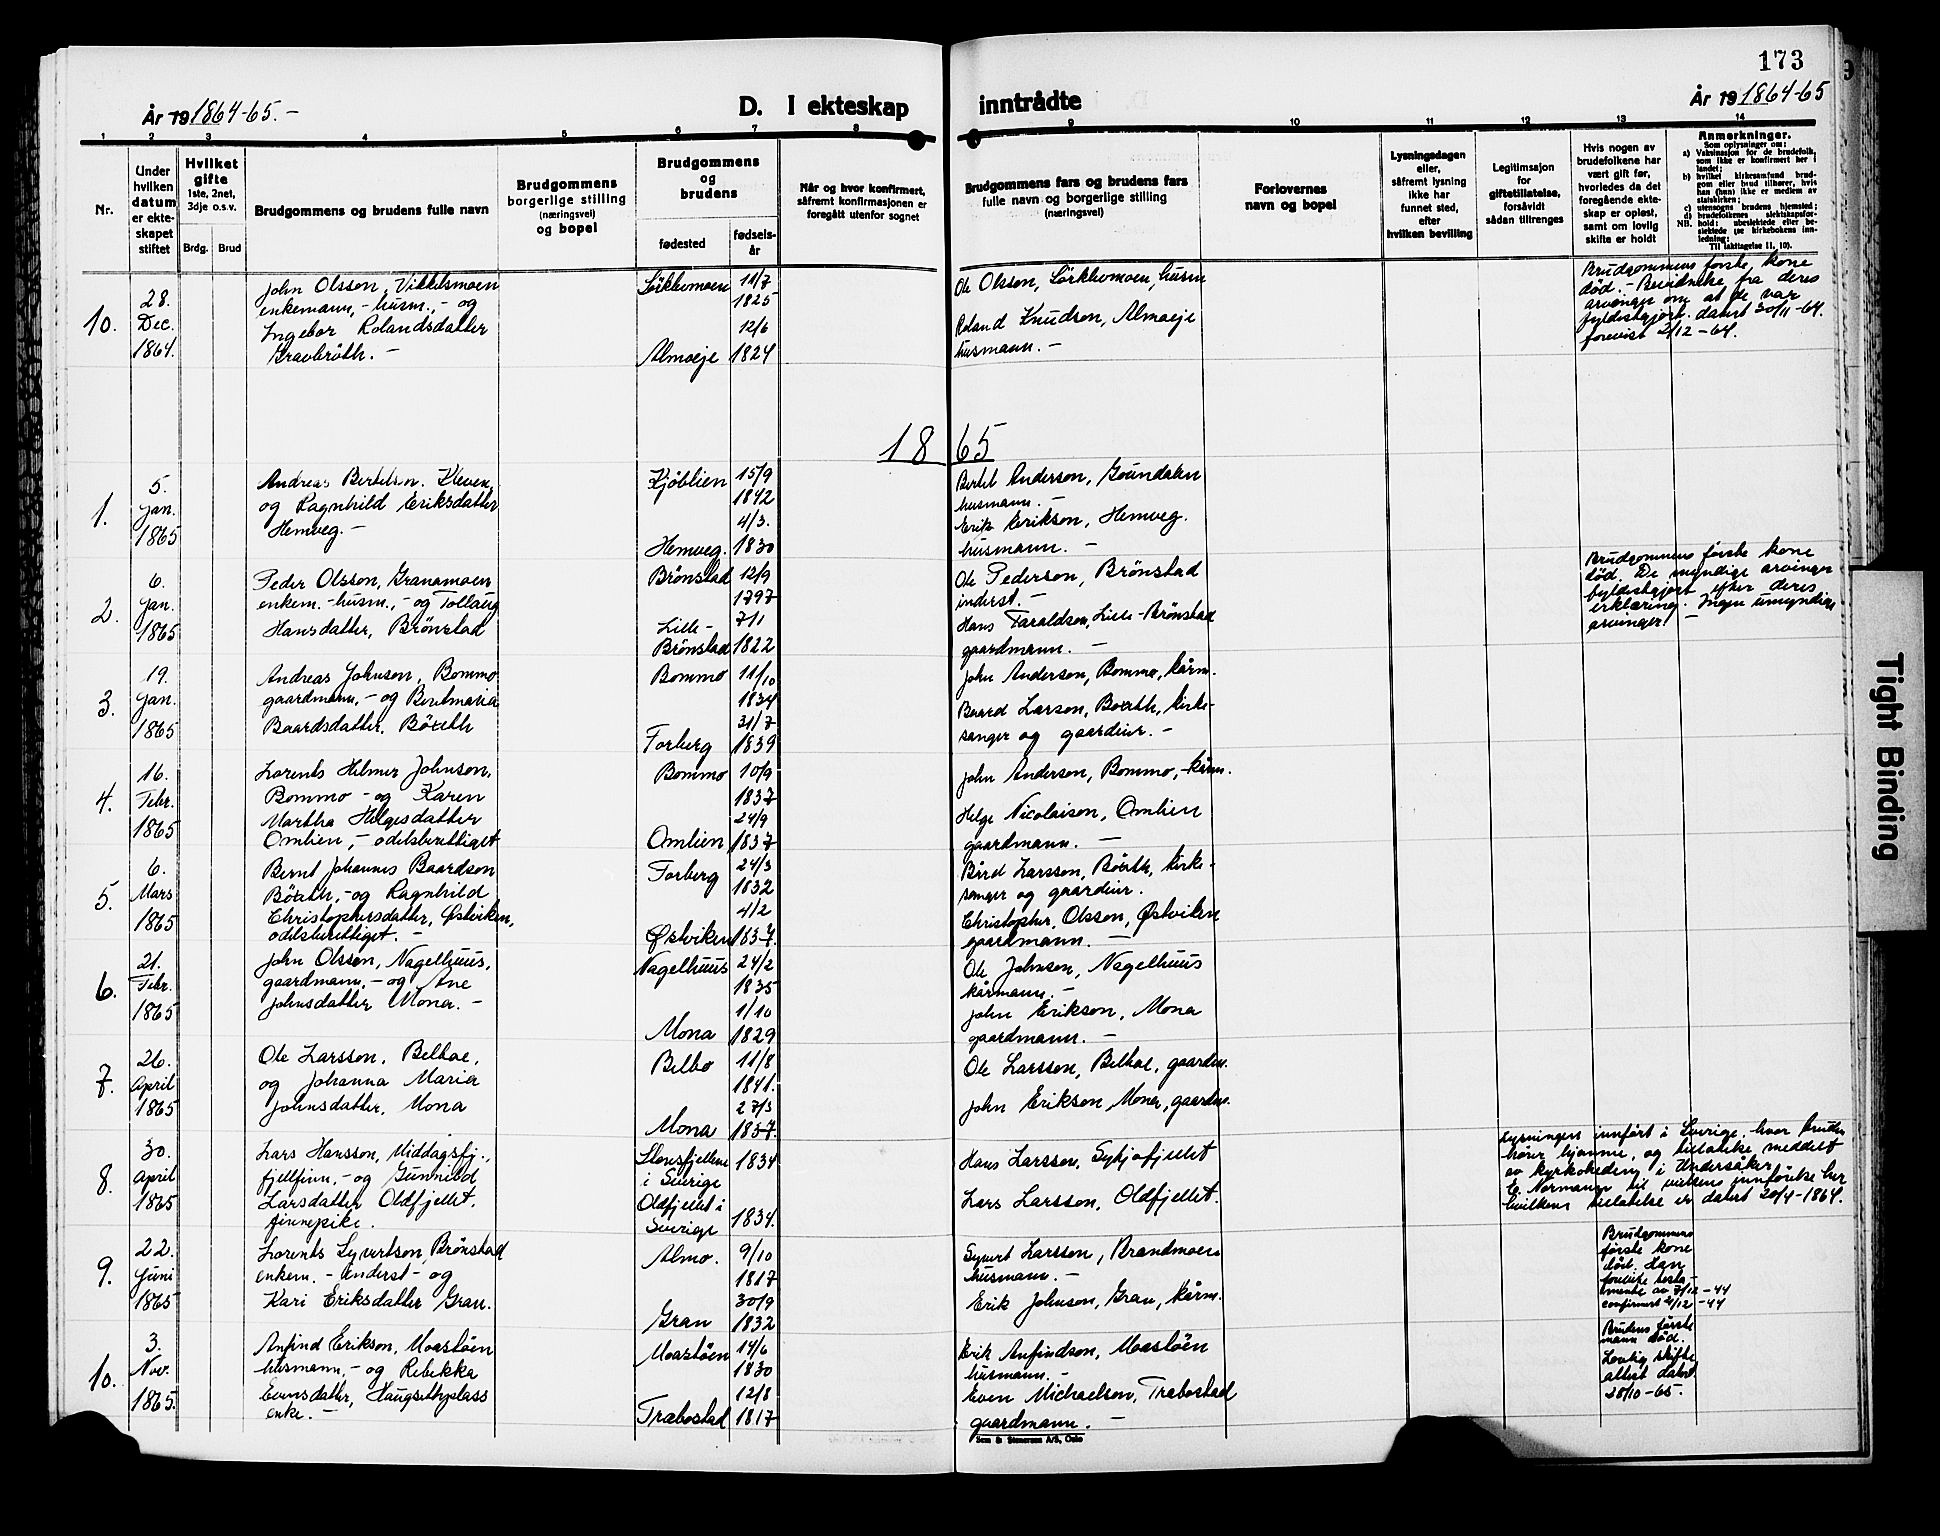 173
År 19 1864-65.-
D. I ekteskap inntrådte
År 19 1864-65
1 2 3 4 5 6 7 8 9 10 11 12 13 14
Nr.
Under hvilken datum er ekteskapet stiftet
Hvilket gifte
1ste, 2net, 3dje o.s.v.
Brdg. Brud
Brudgommens og brudens fulle navn
Brudgommens borgerlige stilling (næringsvei) og bopel
Brudgommens og brudens
fødested
fødselsår
Når og hvor konfirmert, såfremt konfirmasjonen er foregått utenfor sognet
Brudgommens fars og brudens fars
fulle navn og borgerlige stilling
(næringsvei)
Forlovernes
navn og bopel
Lysningsdagen eller, såfremt lysning ikke har funnet sted, efter hvilken bevilling
Legitimasjon for giftetillatelse, forsåvidt sådan tiltrenges
Hvis nogen av brudefolkene har vært gift før, hvorledes da det foregående ekteskap er opløst, samt om lovlig skifte er holdt
Anmerkninger.
Som oplysninger om:
a) Vaksinasjon for de brudefolk, som ikke er konfirmert her i landet;
b) hvilket kirkesamfund brudgom eller brud tilhører, hvis han (hun) ikke er medlem av statskirken;
c) utensogns brudens hjemsted;
d) brudefolkenes slektskapsforhold: ubeslektede eller beslektede (se kirkebokens innledning;
NB. Til iakttagelse 11, 10).
10.
28. Dec. 1864.
John Olsson, Vikkelsmoen
enkemann, - husm., - og
Ingebor Rolandsdatter
Gravbröth. -
Lörkhemoen 11/7 1825
Almoeje 12/6 1824
Ole Olsson, Lörkhemoen, husm
Roland Knudson, Almoeje
husmann. -
Brudgommens første kone
død. - Bevidnelse fra deres
arvenger om at de var
fyldestgjort. datert 30/11-64.
forevist 2/12 - 64.
1865
1.
5. Jan. 1865
Andreas Bertelsen. Kleven,
og Ragnhild Eriksdatter
Hemveg. -
Kjöblien 15/9 1842
Hemveg. 4/3. 1830
Bertel Anderson, Goundalen
husmann. -
Erik Erikson, Hemveg.
husmann. -
2.
6. Jan. 1865
Peder Olsson, Granamoen
enkem. - husm., - og Tollaug
Hansdatter, Brönstad
Brönstad 12/9 1797
Lille-Brönstad 7/1 1822
Ole Pederson, Brönstad
inderst. -
Hans Faraldson, Lille-Brönstad
gaardmann. -
Brudgommens første kone
død. De myndige arvinger
fyldestgjort efter deres
erklæring. Ingen umyndige
arvinger! -
3.
19. Jan. 1865
Andreas Johnson, Bommo
gaardmann, - og Beritmaria
Baardsdatter, Böxeth
Bommo 11/10 1834
Forberg 31/7 1839
John Anderson, Bommo, kårm.
Baard Larson, Böxeth, kirke-
sanger og gaardeier. -
4.
16. Febr. 1865
Lorents Hilmer Johnson,
Bommo - og Karen
Martha Helgesdatter
Omlien, - odelsberettiget
Bommo 10/9 1837
Omlien 24/9 1837
John Anderson, Bommo, - kårm.
Helge Nicolaison, Omlien
gaardmann. -
5.
6. Mars 1865
Bernt Johannes Baardson
Böxeth, - og Ragnhild
Christophersdatter, Østviken,
odelsberettiget. -
Forberg 24/3 1832
Østviken 4/2 1837.
Bård Larsson, Böxeth, kirke-
sanger og gaardeier.
Christopher Olsson, Østviken
gaardmann. -
6.
21. Febr. 1865
John Olsson, Nagelhuus,
gaardmann, - og Ane
Johnsdatter Mona. -
Nagelhuus 24/2 1835
Mona 1/10 1829
Ole Johnson, Nagelhuus
kårmann. -
John Erikson, Mona
gaardmann. -
7.
26. April 1865
Ole Larsson, Belboe,
og Johanna Maria
Johnsdatter, Mona
Belbo 11/8 1841.
Mona 27/3 1837.
Ole Larsson, Belboe, gaardm.
John Erikson, Mona, gaardm.
8.
30. April 1865
Lars Hansson, Middagsfj.,
fjellfinn, - og Gunnild
Larsdatter Oldfjellet,
finnepike.
i Sverige 1834
Oldfjellet i Sverige 1834.
Hans Larsson,
Lars Larsson, Oldfjellet.
Lysningen innført i Sverige, hvor bruden
hører hjemme, og tillatelse meddelt
av kyrkoherden i Undersåker
E. Norrmann til vielsens innførelse her
hvilken tillatelse er datert 20/4-1864.
9.
22. Juni 1865
Lorents Syvertson, Brönstad
enkem. - inderst - og
Kari Eriksdatter Gran.
Almo. 9/10 1817
Gran 30/9 1832
Syvert Larsson, Brandmoen
husmann. -
Erik Johnson, Gran, kårm.
Brudgommens
første kone
død. Han
foreviste testa-
mente av 7/12 - 44
confirmert 2/12 - 44
10.
3. Nov. 1865.
Anfind Erikson, Moastöen
husmann, - og Rebekka
Evensdatter, Haugsethplass
enke. -
Moastöen 14/6 1830
Træbostad 12/8 1817
Erik Anfindson, Moastöen
husmann. -
Even Michaelson, Træbostad
gaardmann. -
Brudens første
mann død.
Lovlig skifte
attest datert
28/10-65.
Sem & Stenersen A/S, Oslo
Tight Binding